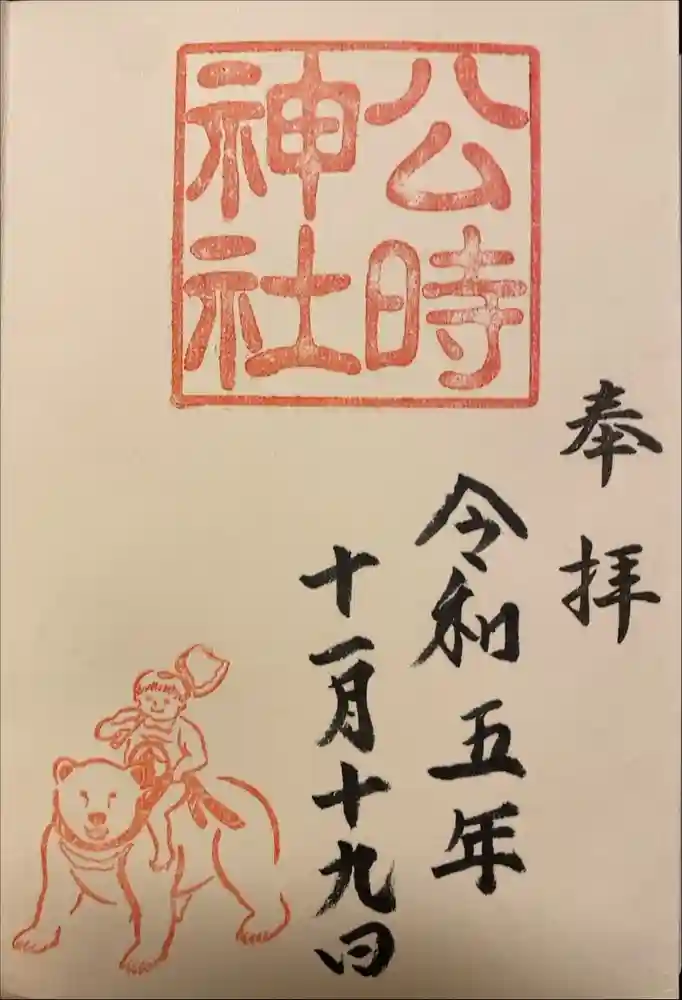 奉拝
令和五年
十一月十九日
公時
神社